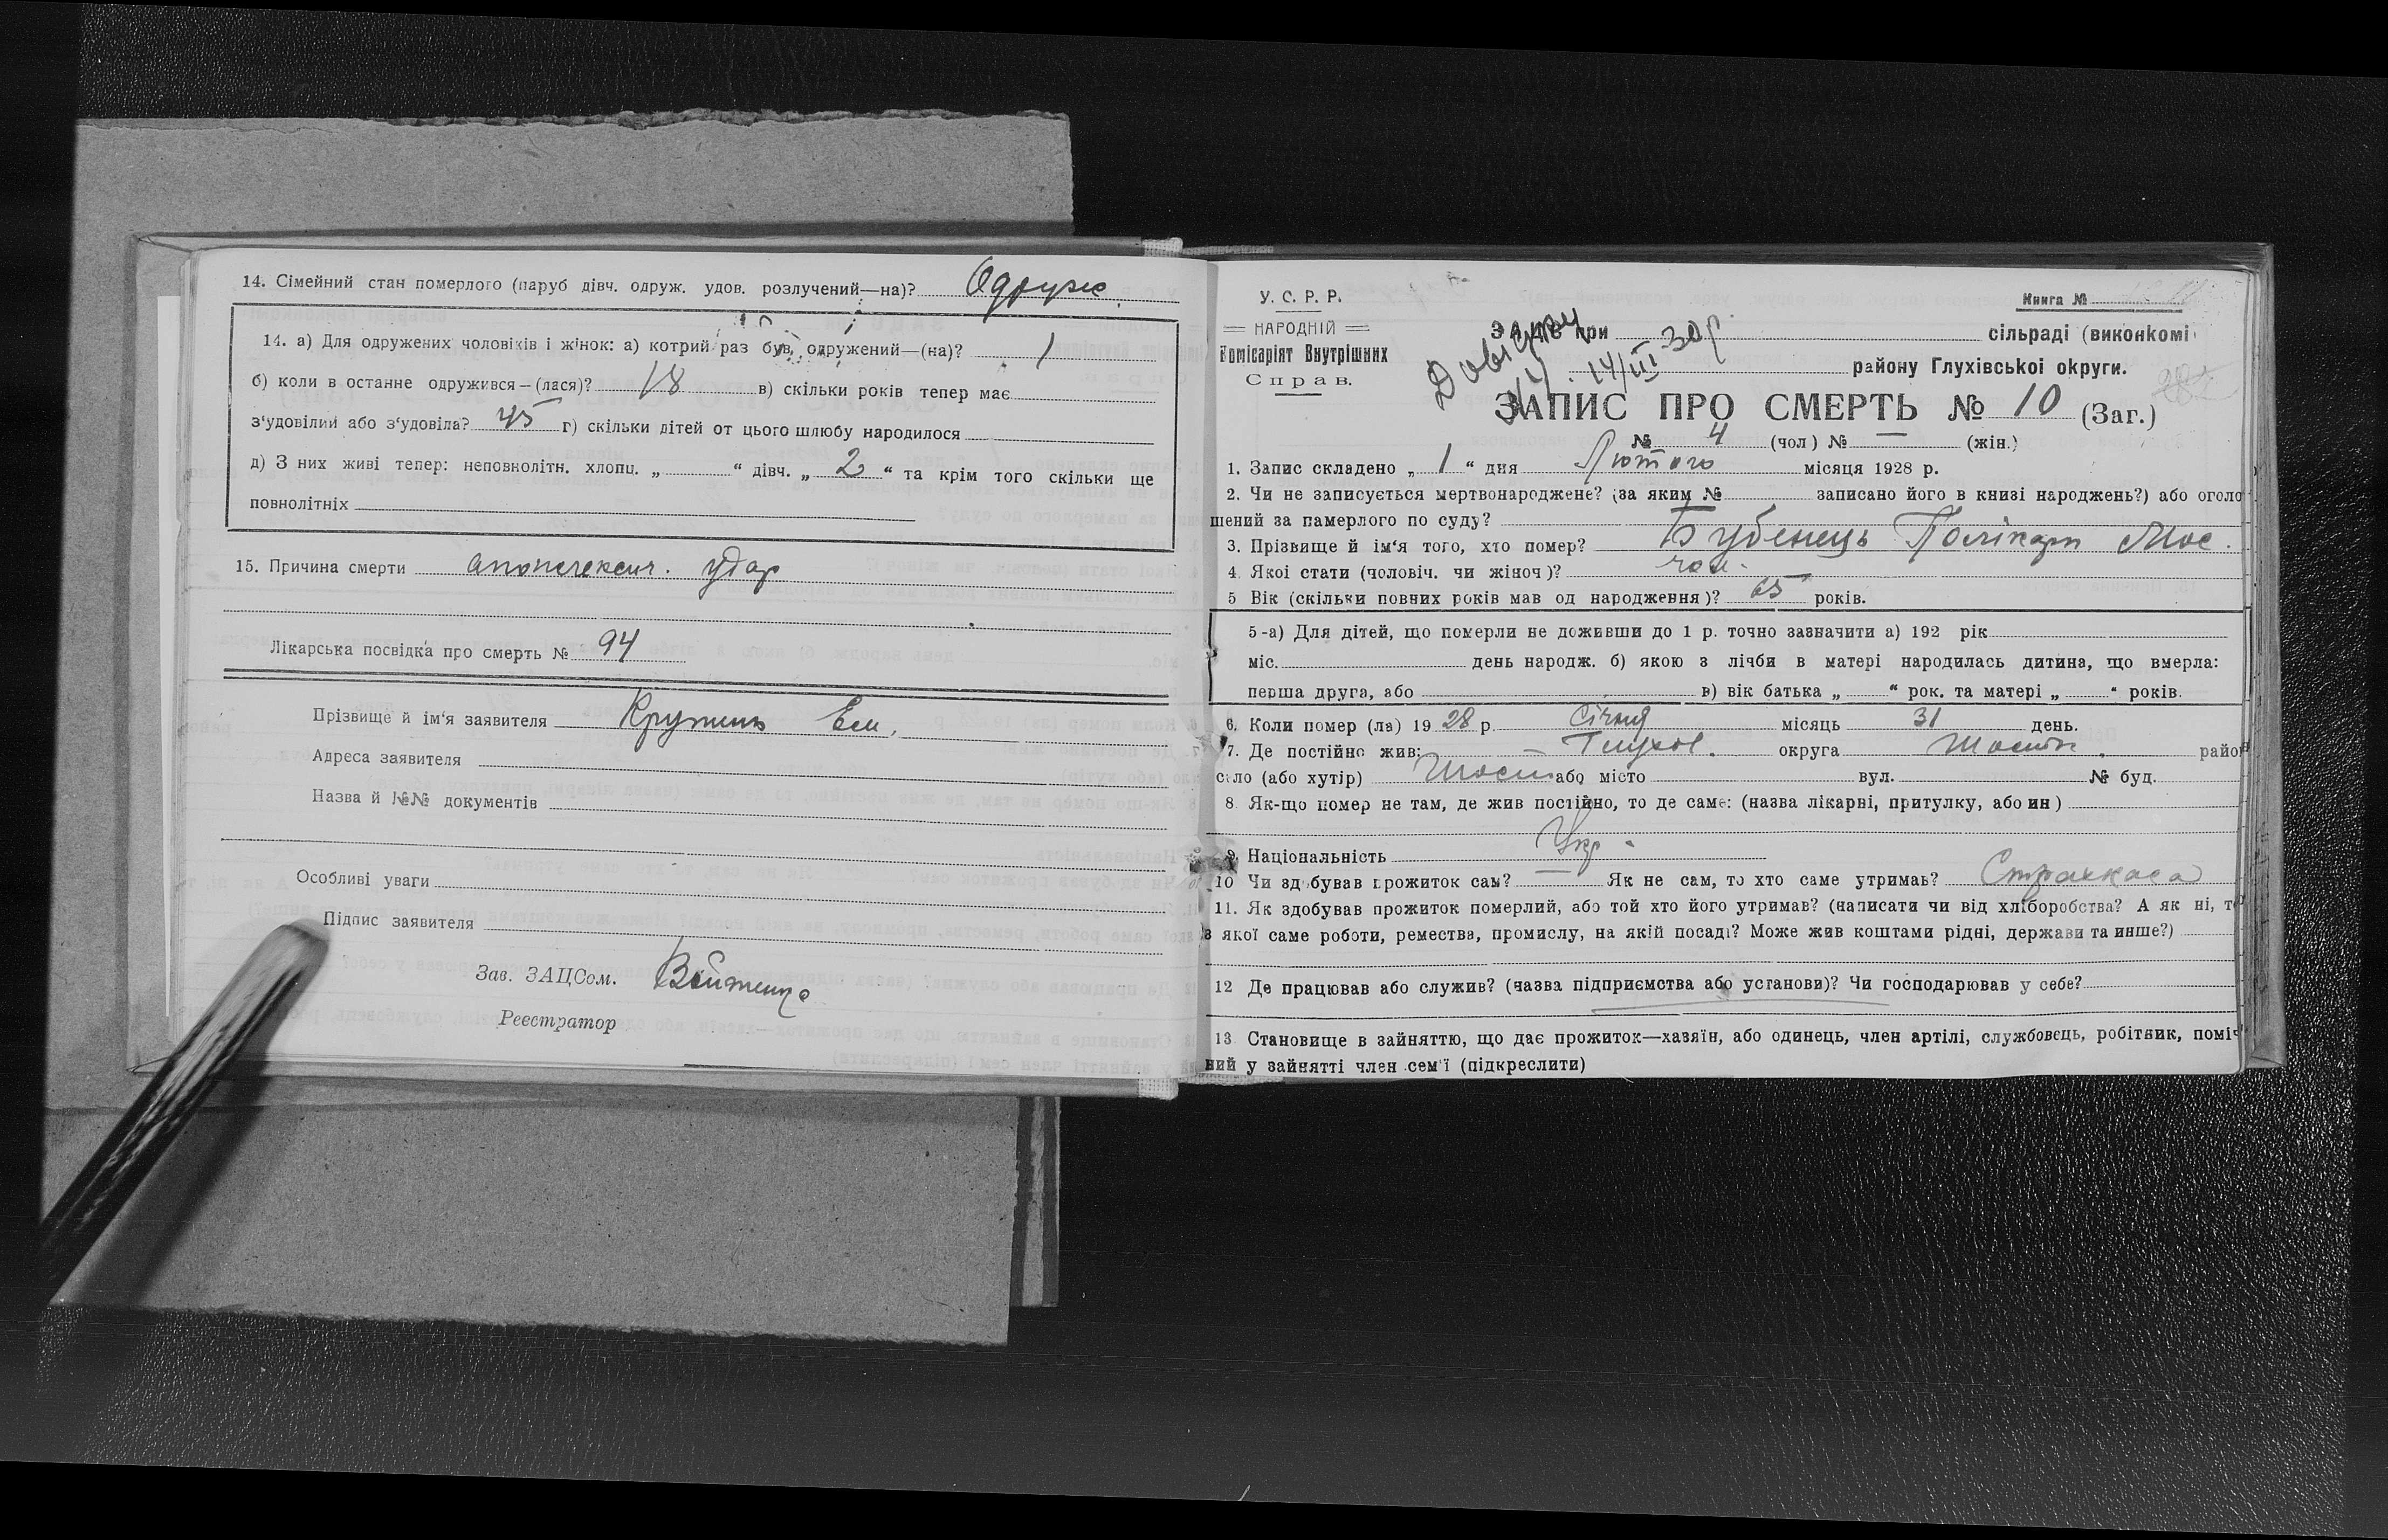 14. Сімейний стан померлого (паруб дівч. одруж. удов. розлучений—на)? Одруж.
14. а) Для одружених чоловіків і жінок: а) котрий раз був, одружений—(на)? 1
б) коли в останнє одружився—(лася)? 18 в) скільки років тепер має
з'удовілий або з'удовіла? 45 г) скільки дітей от цього шлюбу народилося
д) З них живі тепер: неповнолітн. хлопц. „ “ дівч. „ 2 “ та крім того скільки ще
повнолітніх
15. Причина смерти апоплексич. удар
Лікарська посвідка про смерть № 94
Прізвище й ім'я заявителя Кружень Ем.
Адреса заявителя
Назва й №№ документів
Особливі уваги
Підпис заявителя
Зав. ЗАЦСом.
Реєстратор
У. С. Р. Р.
НАРОДНІЙ
Комісаріят Внутрішних
Справ.
Книга №
ЗАЦС при сільраді (виконкомі
14/III 30 р.
району Глухівської округи.
ЗАПИС ПРО СМЕРТЬ № 10 (Заг.)
№ 4 (чол) № — (жін.)
1. Запис складено „ 1 “ дня Лютого місяця 1928 р.
2. Чи не записується мертвонароджене? (за яким № записано його в книзі народжень?) або оголо
шений за памерлого по суду?
3. Прізвище й ім'я того, хто помер? Бубенець Полікарп Мос.
4. Якої стати (чоловіч. чи жіноч)? чол.
5 Вік (скільки повних років мав од народження)? 65 років.
5-а) Для дітей, що померли не доживши до 1 р. точно зазначити а) 192 рік
міс. день народж. б) якою з лічби в матері народилась дитина, що вмерла:
перша друга, або в) вік батька „ “ рок. та матері „ “ років.
6. Коли помер (ла) 19 28 р Січня місяць 31 день.
7. Де постійно жив: — Глухов. округа Шостк. район
село (або хутір) Шостк або місто вул. № буд.
8. Як-що помер не там, де жив постійно, то де саме: (назва лікарні, притулку, або ин)
9. Національність Укр.
10 Чи здобував прожиток сам? — Як не сам, то хто саме утримав? Страхкаса
11. Як здобував прожиток померлий, або той хто його утримав? (написати чи від хліборобства? А як ні, то
з якої саме роботи, ремества, промислу, на якій посаді? Може жив коштами рідні, держави та инше?)
12 Де працював або служив? (назва підприємства або установи)? Чи господарював у себе?
13 Становище в зайняттю, що дає прожиток—хазяїн, або одинець, член артілі, службовець, робітник, поміч
ний у зайнятті член сем'ї (підкреслити)